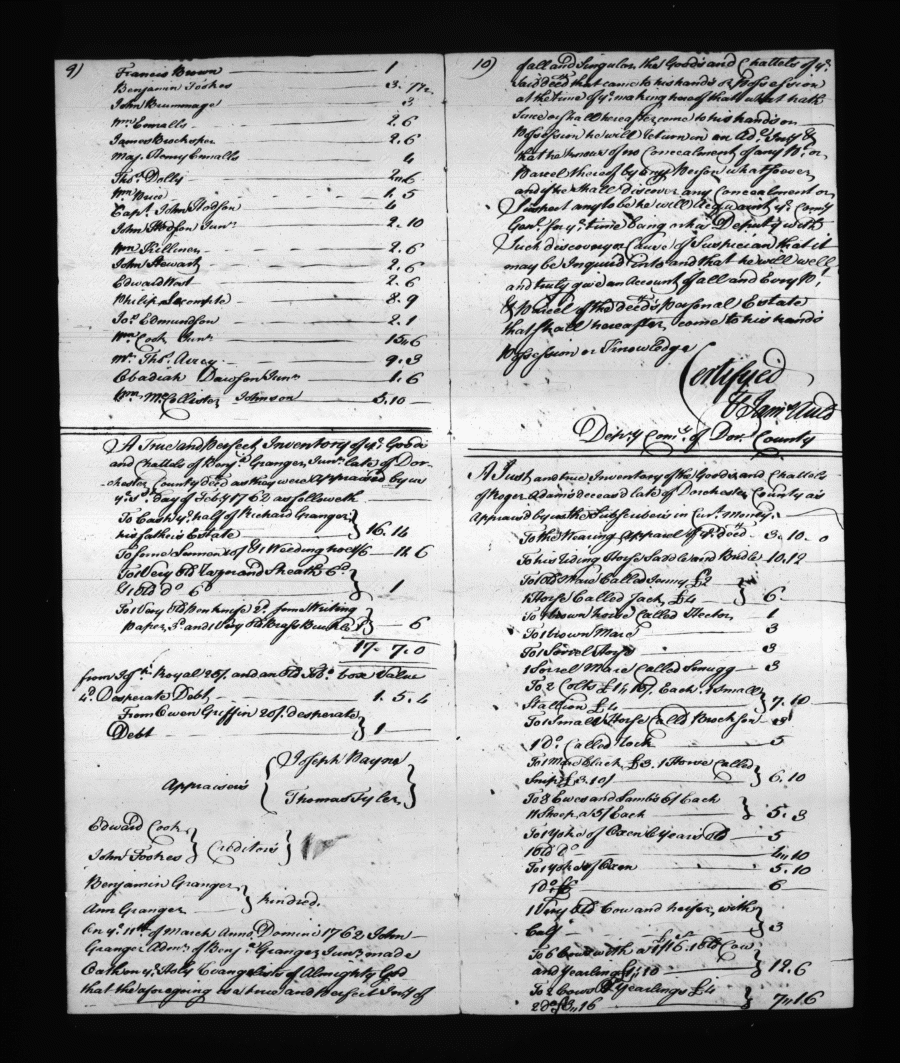 9)
Francis Brown — 1
Benjamin Tookes — 3.
John Brummage — 3
Wm. Ennalls — 2.6
James — 2.6
Maj. Henry Ennalls — 4
Thos. Dolly
Wm.  — 1.5
Capt. John Hodson — 4
John Hodson Junr. — 2.10
Wm. Killman — 2.6
John Stewart — 2.6
Edward West — 2.6
Philip Lecompte — 8.9
Jos. Edmundson — 2.1
Wm. Cook Junr.
Mr. Thos. Airey — 9.3
Obadiah Dawson Junr. — 1.6
Wm. McCollister Johnson — 5.10
A True and Perfect Inventory of ye. Goods
and Chattels of Benja. Granger, Junr. late of Dor-
chester County deced as they were Appraised by us
ye. 3d. Day of Feby 1762 as followeth
To Cash ye. half of Richard Granger
his fathers Estate } 16.14
To some  of  Weeding hoes
To 1 Very old Razor and Sheath 6d.
& 1 old do. 6d } 1
To 1 Very old Pen knife 2d. some Writing
Paper 3d. and 1 Very old Brass Buckle } — 6
17. 7. 0
from  Royal 25/. and an old Tobo. box Value
4d. Desperate Debt — 1. 5. 4
From Owen Griffin 20/. desperate
Debt } 1
Appraisors { Joseph Payne
Thomas Tyler
Edward Cook
John Tookes } Creditors }
Benjamin Granger
Ann Granger } kindred.
On ye. 11th. of March Anno Domini 1762 John
Granger Admr. of Benja. Granger Junr. made
Oath on ye. Holy Evangelists of Almighty God
that the aforegoing is a true and Perfect Invy of
10)
of all and Singular, the Goods and Chattels of ye.
said deced that came to his hands or Possession
at the time of ye. making hereof that what hath
since or shall hereafter come to his hands or
Possession he will return in an Adl. Invy &
that he knows of no Concealment of any Pt. or
Parcel thereof by any Person whatsoever,
and if he shall discover any Concealment or
Suspect any to be he will acquaint ye. Comy
Genl. for ye. time being or his Deputy with
Such discovery or Cause of Suspician that it
may be Inquired into and that he will well
and truly give an Account of all and Every Pt.
& Parcel of the deceds Personal Estate
that shall hereafter, come to his hands
Possession or Knowledge
Certifyed
Auld
Depy Comy. of Dor. County
A Just and true Inventory of the Goods and Chattels
of Roger Adams deceasd late of Dorchester County as
Appraisd by us the Subscribers in Curt. Money.
To the Wearing Apparel of ye. deced — 3. 10. 0
To his Riding Horse Saddle and Bridle — 10.12
To 1 Old Mare Called Jenny £2
1 Horse Called Jack £4 } 6
To 1 brown horse Called Hector — 1
To 1 brown Mare — 3
To 1 Sorrel Horse — 3
1 Sorrel Mare Called Smugg — 3
To 2 Colts £1 15/. Each. 1 Small
Stallion £4 } 7.10
To 1 Small Horse Called Brockson
1 Do. Called Jock — 5
To 1 Mare black £3. 1 Horse Called
Snip £3.10/ } 6.10
To 8 Ewes and Lambs 6/ Each
11 Sheep a 5/ Each } 5.3
To 1 Yoke of Oxen 6 Years Old — 5
1 Old do. — 4.10
To 1 Yoke of Oxen — 5.10
1 do. — 6
1 Very old Cow and heifer, with
Calf } 3
To 6 Cows with a  1 old Cow
and Yearling £1.10 } 12.6
To 2 Cows & Yearlings £4
2 do. £3.16 } 7.16